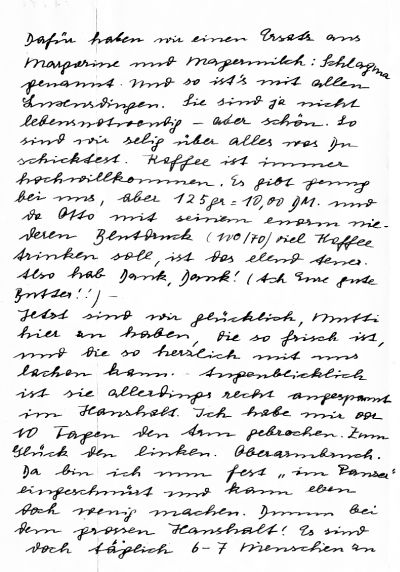 Dafür haben wir einen Ersatz aus
Margarine und Magermilch: Schlagma
genannt. Und so ist's mit allen
Luxusdingen. Sie sind ja nicht
lebensnotwendig – aber schön. So
sind wir selig über alles was Du
schicktest. Kaffee ist immer
hochwillkommen. Es gibt genug
bei uns, aber 125 gr = 10,00 DM. und
da Otto mit seinem enorm nie-
deren Blutdruck (100/70) viel Kaffee
trinken soll, ist das elend teuer.
Also hab Dank, Dank! (Ach Eure gute
Butter!!) –
Jetzt sind wir glücklich, Mutti
hier zu haben, die so frisch ist,
und die so herzlich mit uns
lachen kann. – Augenblicklich
ist sie allerdings recht angespannt
im Haushalt. Ich habe mir vor
10 Tagen den Arm gebrochen. Zum
Glück den linken. Oberarmbruch.
Da bin ich nun fest „im Panzer"
eingeschnürt und kann eben
doch wenig machen. Dumm bei
dem grossen Haushalt! Es sind
doch täglich 6-7 Menschen an